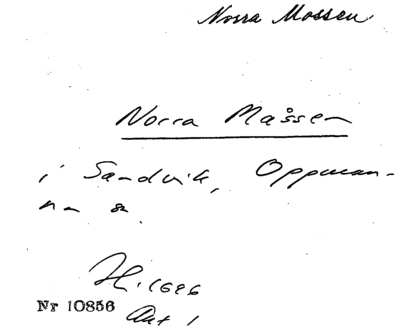 Norra Mossen
Norra Måssen
i Sandvik, Oppman-
na sn.
Nr 10856